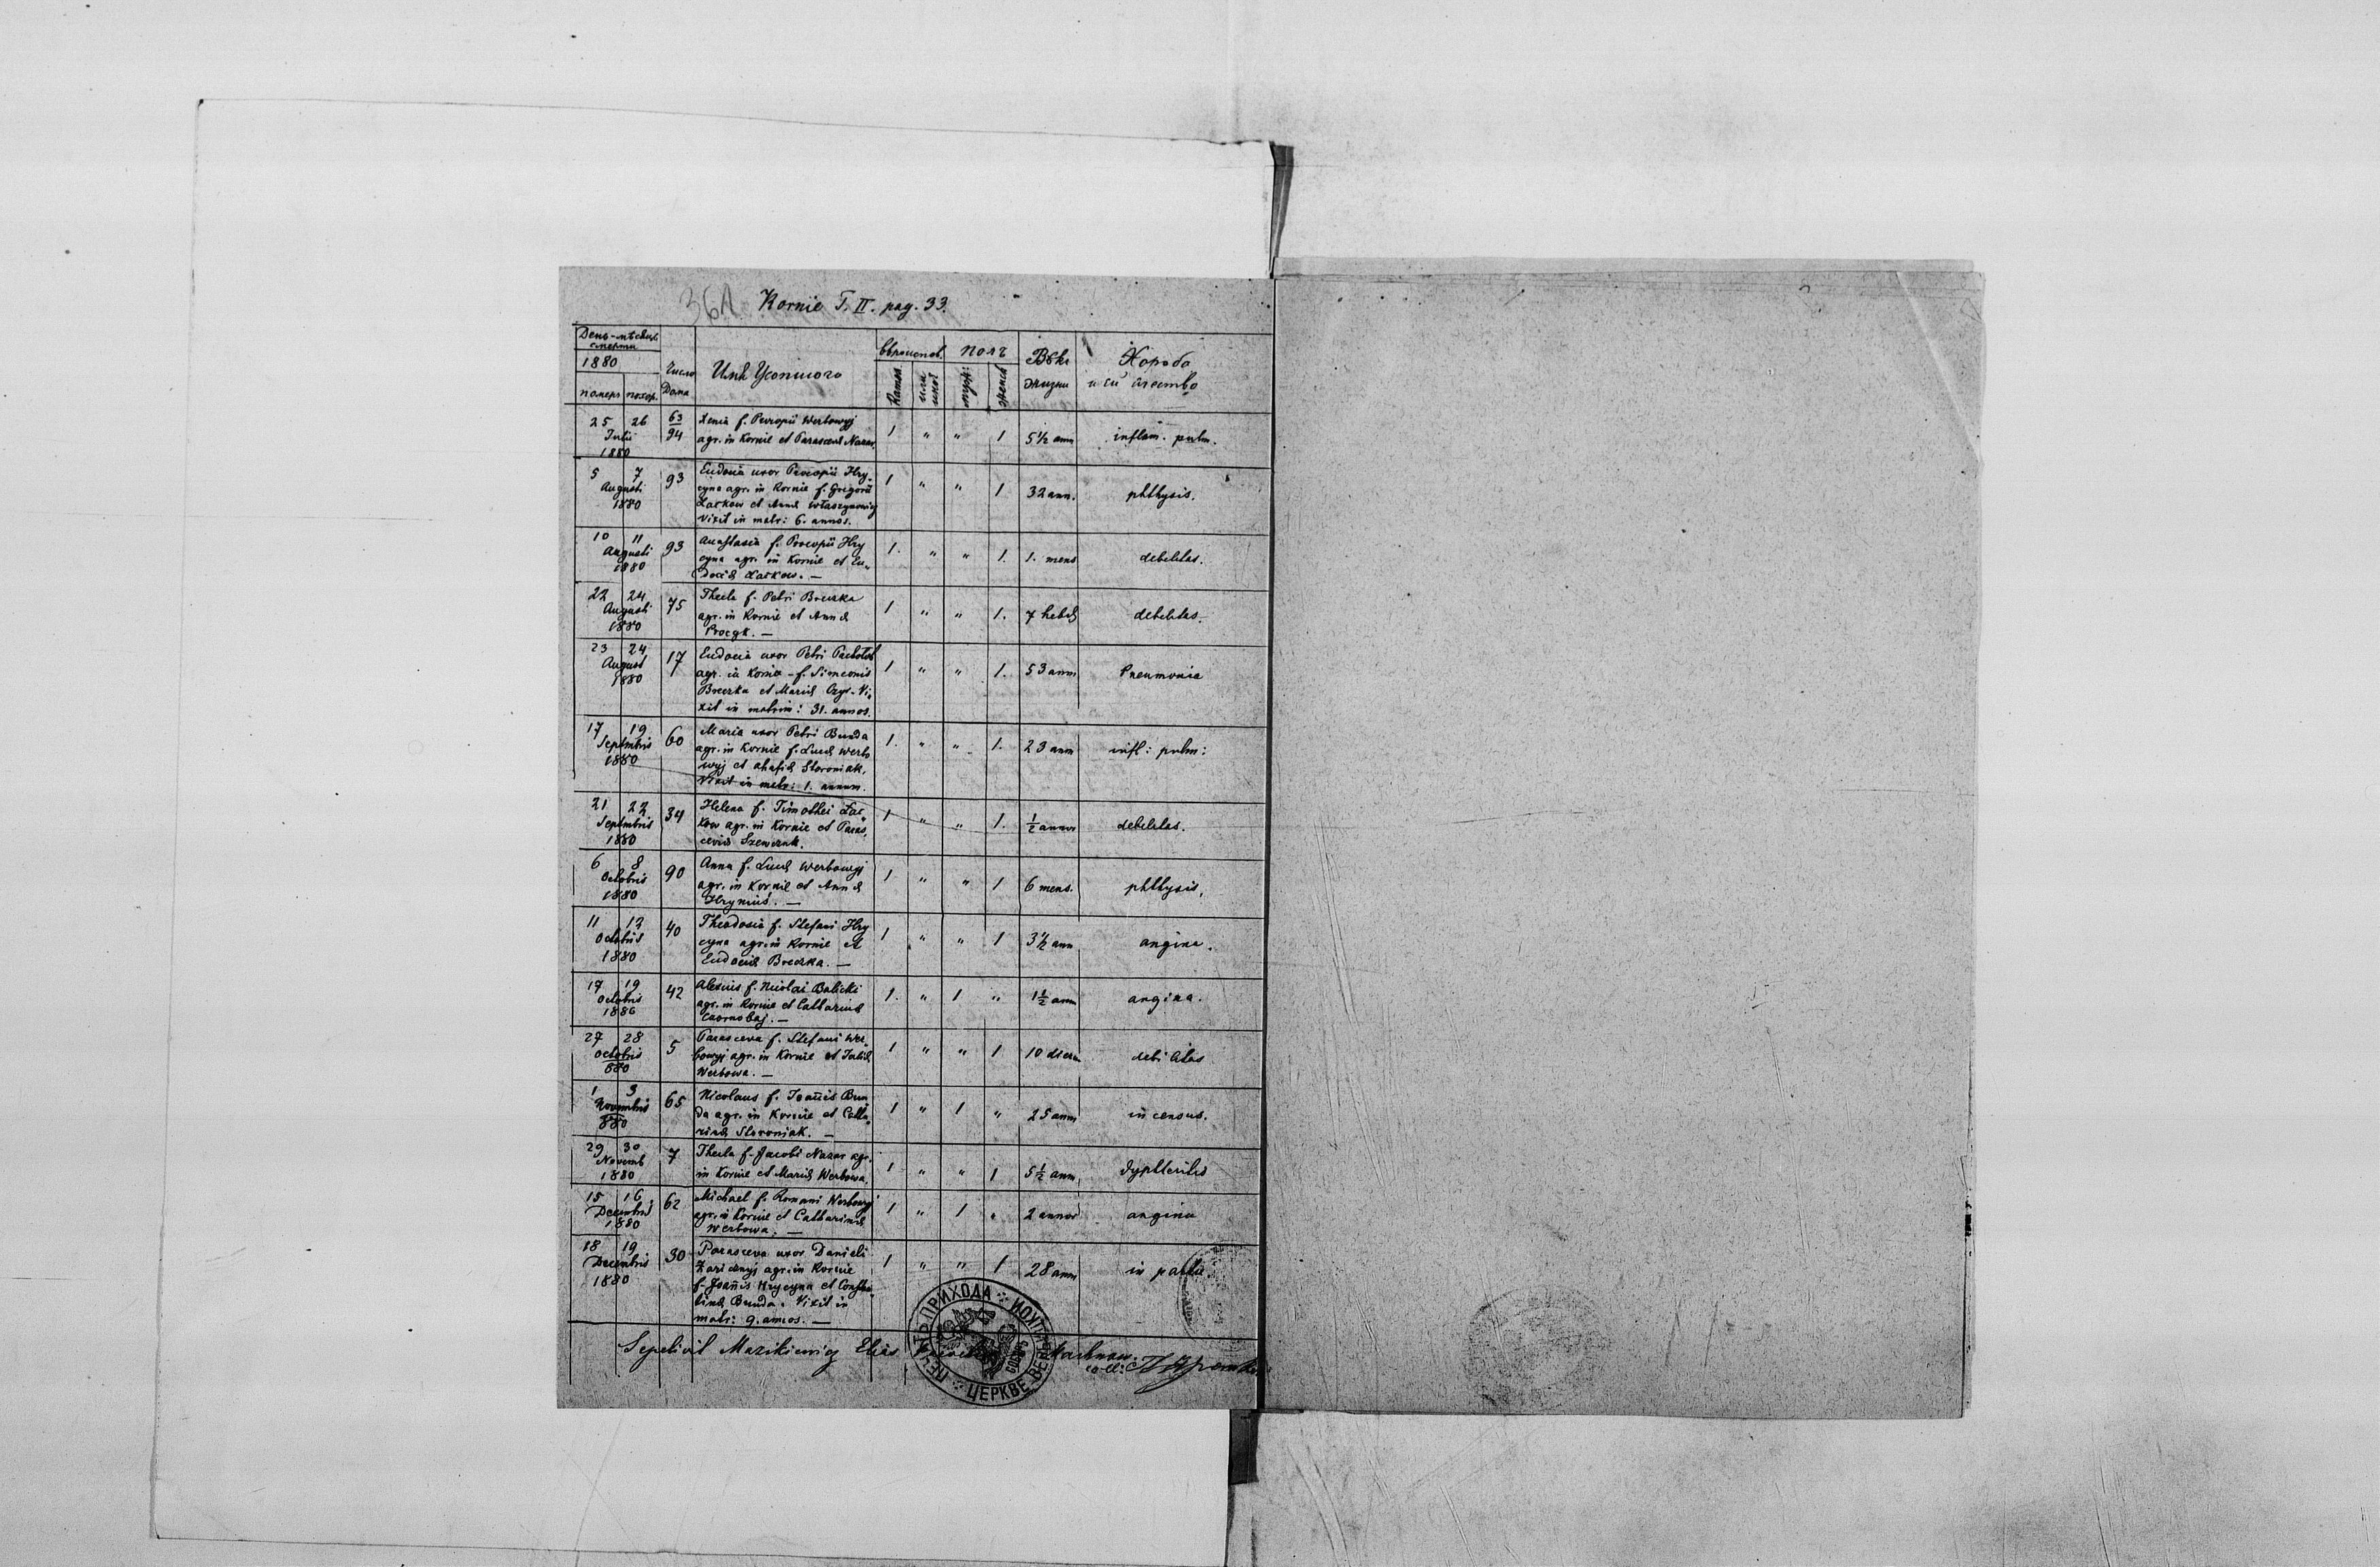 361. Kornie T. II. pag. 33.
День-мѣсяцъ смерти
1880
померъ похор.
Число Дома
Имя Усопшого
Вѣроиспов.
Катол.
или иной
Полъ
муж:
женск
Вѣкъ жизни
Хороба и єи качество
25 26 Julii 1880 63/94 Xenia f. Procopii Werbowyj
agr. in Kornie et Parascevæ Nazar. 1 " " 1 5 1/2 ann inflam. pulm.
5 7 Augusti 1880 93 Eudocia uxor Procopii Hry-
cyna agr. in Kornie f. Grigorii
Laskow et Annæ
Vixit in matr: 6. annos. 1 " " 1 32 ann. phthysis.
10 11 Augusti 1880 93 Anastasia f. Procopii Hry
cyna agr. in Kornie et Eu-
dociæ Laskow. — 1. " " 1. 1. mens debilitas.
22 24 Augusti 1880 75 Thecla f. Petri Breczka
agr. in Kornie et Annæ
1 " " 1. 7 hebd debilitas.
23 24 August 1880 17 Eudocia uxor Petri
agr. in Kornie - f. Simeonis
Breczka et Mariæ Vi-
xit in matrim: 31. annos. 1 " " 1. 53 ann Pneumonia
17 19 Septembris 1880 60 Maria uxor Petri Bunda
agr. in Kornie f. Lucæ Werbo
wyj et Ahafiæ Storoniak.
Vixit in matr: 1. annum. 1. " " 1. 23 ann infl: pulm:
21 22 Septembris 1880 34 Helena f. Timothei Las-
kow agr. in Kornie et Paras-
ceviæ Szewczuk. 1 " " 1. 1/2 annor debilitas.
6 8 Octobris 1880 90 Anna f. Lucæ Werbowyj
agr. in Kornie et Annæ
Hryniuś. — 1 " " 1 6 mens. phthysis,
11 12 Octobris 1880 40 Theodosia f. Stefani Hry
cyna agr. in Kornie et
Eudociæ Breczka. — 1 " " 1 3 1/2 ann angina.
17 19 Octobris 1880 42 Alexius f. Nicolai Balicki
agr. in Kornie et Catharinæ
Czornobaj. — 1. " 1 " 1 1/2 ann angina.
27 28 Octobris 880 5 Parasceva f. Stefani Wer-
bowyj agr. in Kornie et Juliæ
Werbowa. — 1 " " 1 10 dierum debilitas
1 3 Novembris 880 65 Nicolaus f. Joañis Bun
da agr. in Kornie et Catha-
rinæ Storoniak. — 1 " 1 " 25 ann incensus.
29 30 Novemb 1880 7 Thecla f. Jacobi Nazar agr.
in Kornie et Mariæ Werbowa. 1 " " 1 5 1/2 ann dyphteritis
15 16 Decembris 1880 62 Michael f. Romani Werbowyj
agr. in Kornie et Catharinæ
Werbowa. — 1 " 1 " 2 annor angina
18 19 Decembris 1880 30 Parasceva uxor Danieli
Zaricznyj agr. in Kornie
f. Joañis Hrycyna et Constan-
tinæ Bunda. Vixit in
matr: 9. annos. — 1 " " 1 28 ann in partu
Sepelivit Mazikiewicz Elias
ПЕЧАТЬ ПРИХОДА ЦЕРКВЕ